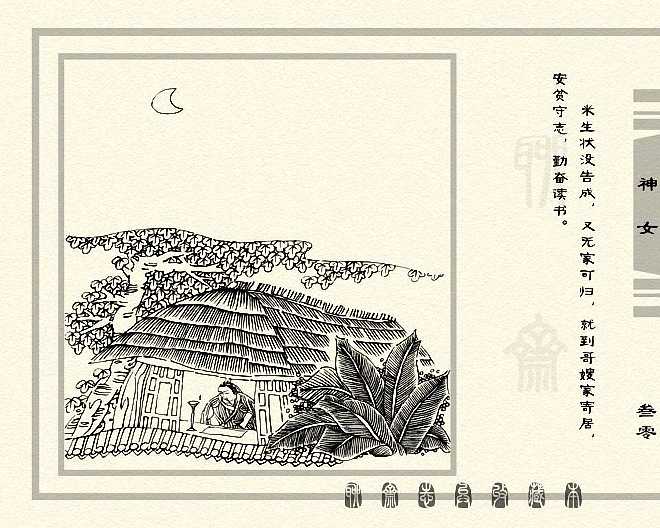 神女
米生状没告成，又无家可归，就到哥嫂家寄居，
安贫守志，勤奋读书。
叁零